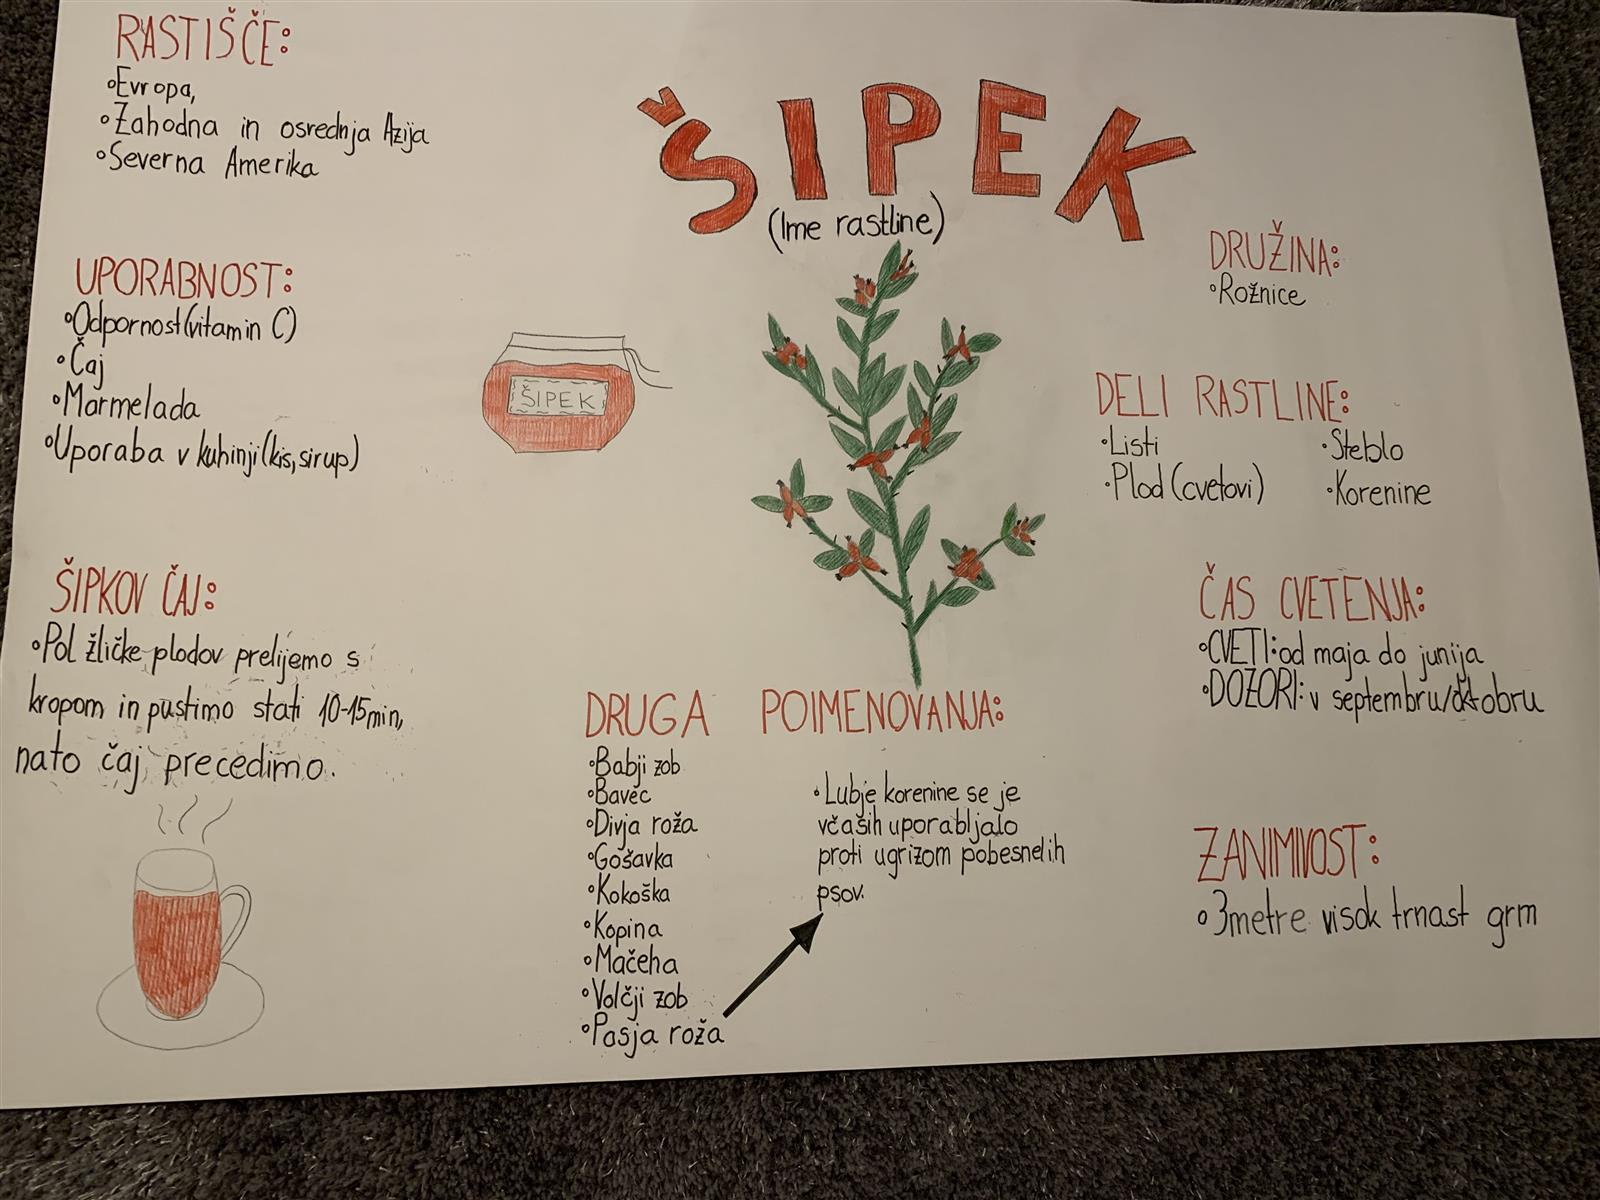 RASTIŠČE:
Evropa,
Zahodna in osrednja Azija
Severna Amerika
ŠIPEK
(Ime rastline)
UPORABNOST:
Odpornost(vitamin C)
Čaj
Marmelada
Uporaba v kuhinji(kis, sirup)
ŠIPEK
DRUŽINA:
Rožnice
DELI RASTLINE:
Listi
Plod (cvetovi)
Steblo
Korenine
ŠIPKOV ČAJ:
Pol žličke plodov prelijemo s
kropom in pustimo stati 10-15min,
nato čaj precedimo.
ČAS CVETENJA:
CVETI: od maja do junija
DOZORI: v septembru/oktobru
DRUGA POIMENOVANJA:
Babji zob
Bavec
Divja roža
Gošavka
Kokoška
Kopina
Mačeha
Volčji zob
Pasja roža
Lubje korenine se je
včasih uporabljalo
proti ugrizom pobesnelih
psov.
ZANIMIVOST:
3metre visok trnast grm